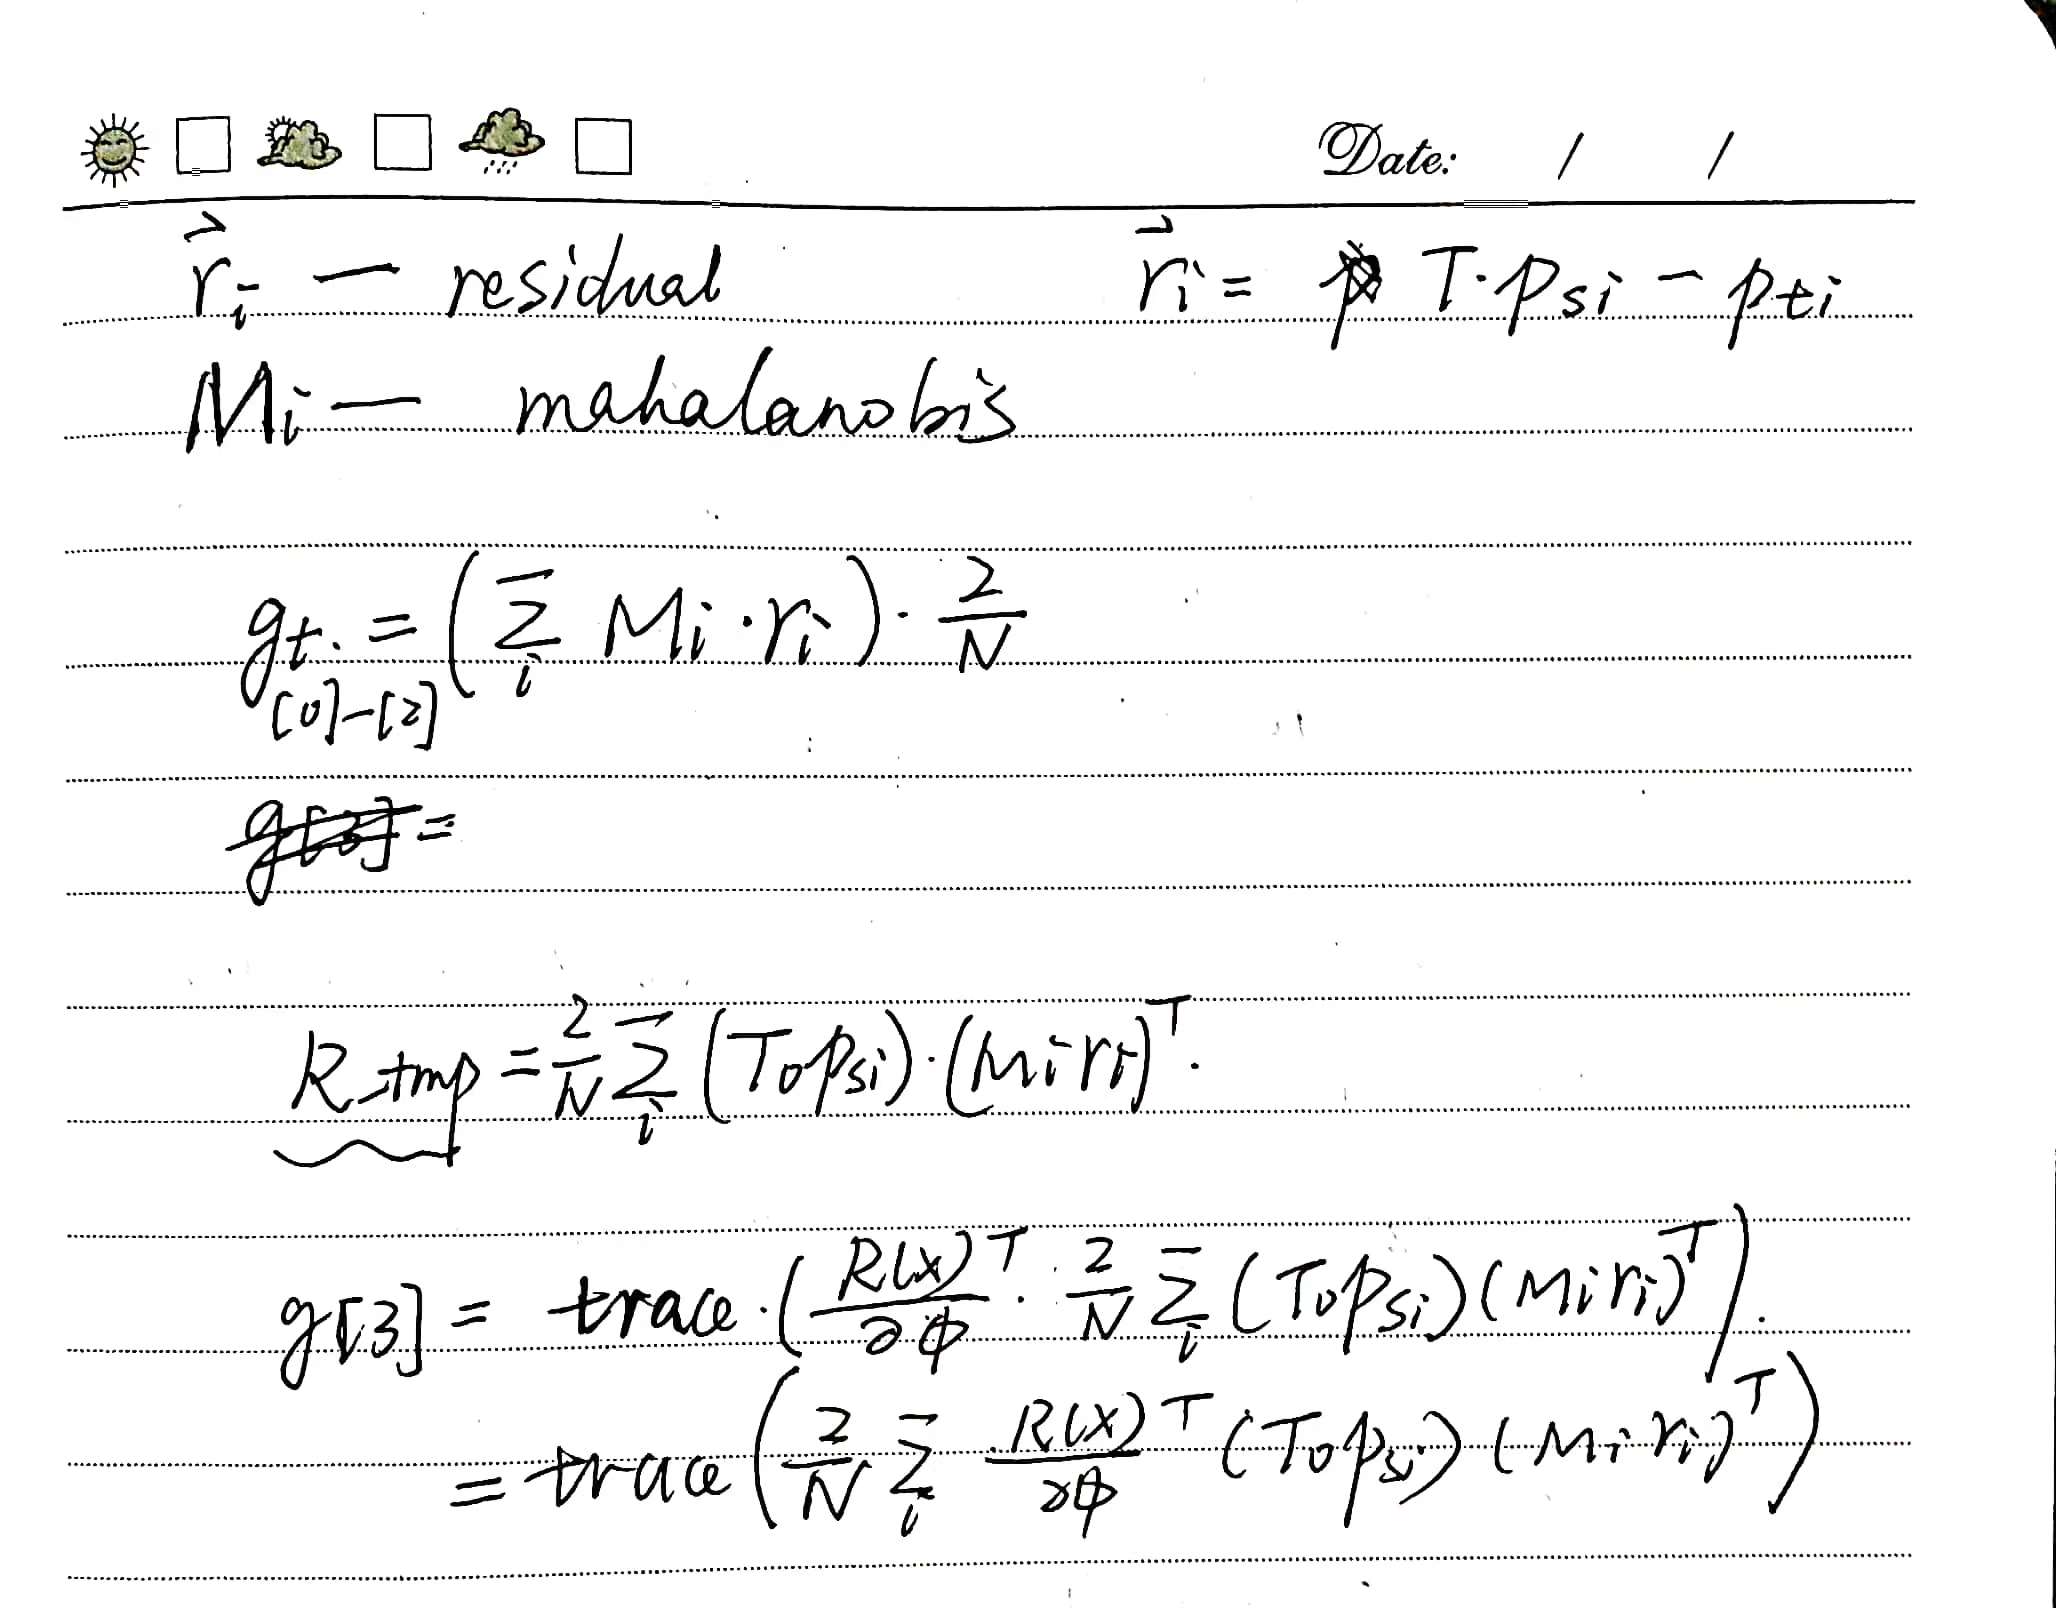 Date: / /
r⃗i — residual r⃗i = T·psi − pti
Mi — mahalanobis
gt. = (∑i Mi·ri)·2/N
[0]–[2]
g[3] =
R_tmp = 2/N ∑i (Topsi)·(Miri)ᵀ.
g[3] = trace·(R(x)ᵀ/∂ϕ · 2/N ∑i (Topsi)(Miri)ᵀ).
= trace(2/N ∑i R(x)ᵀ/∂ϕ (Topsi)(Miri)ᵀ)